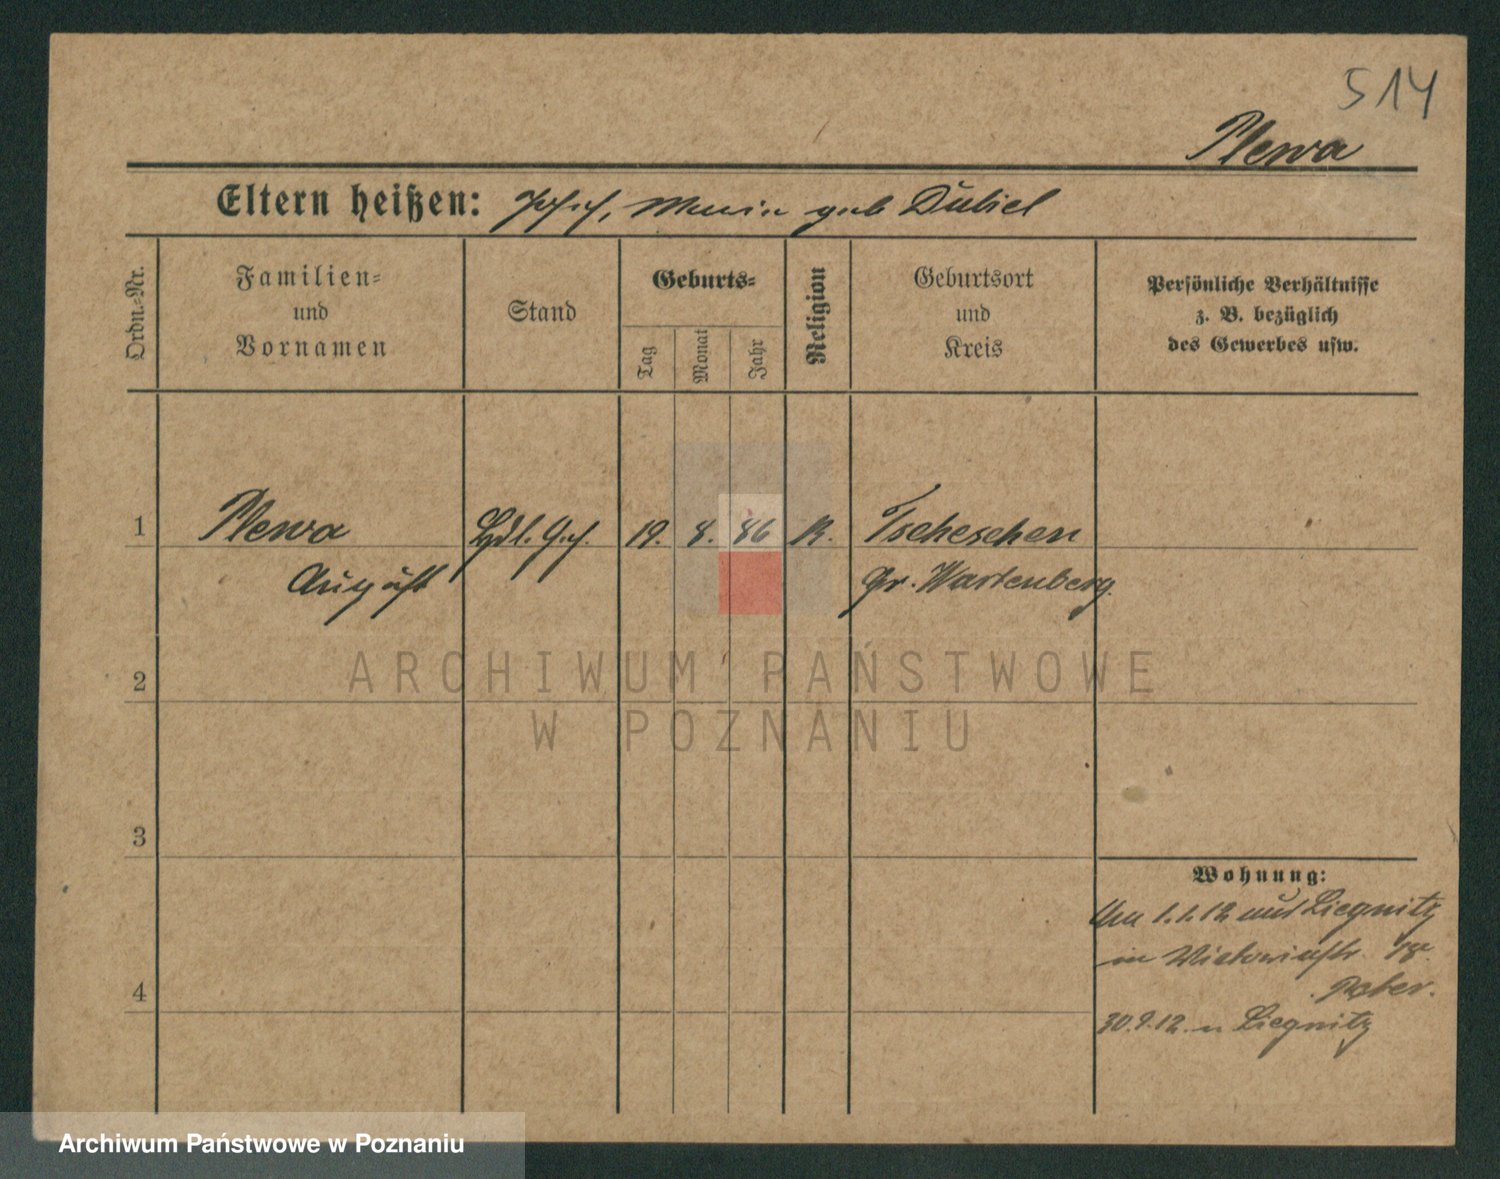 514
Plewa
Eltern heißen: Josef, Maria geb Dubiel
Ordn.-Nr.
Familien-
und
Vornamen
Stand
Geburts-
Tag
Monat
Jahr
Religion
Geburtsort
und
Kreis
Persönliche Verhältnisse
z. B. bezüglich
des Gewerbes usw.
1 Plewa Hdl. Geh. 19. 8. 86 K. Tscheschen
August Gr. Wartenberg.
2
3
4
Wohnung:
Am 1.1.12 aus Liegnitz
in Victoriastr.
30.9.12. n Liegnitz
ARCHIWUM PAŃSTWOWE
W POZNANIU
Archiwum Państwowe w Poznaniu